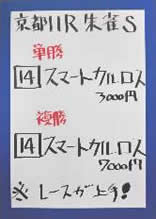 京都11R 朱雀S
単勝
14 スマートカルロス
3000円
複勝
14 スマートカルロス
7000円
※ レースが上手!